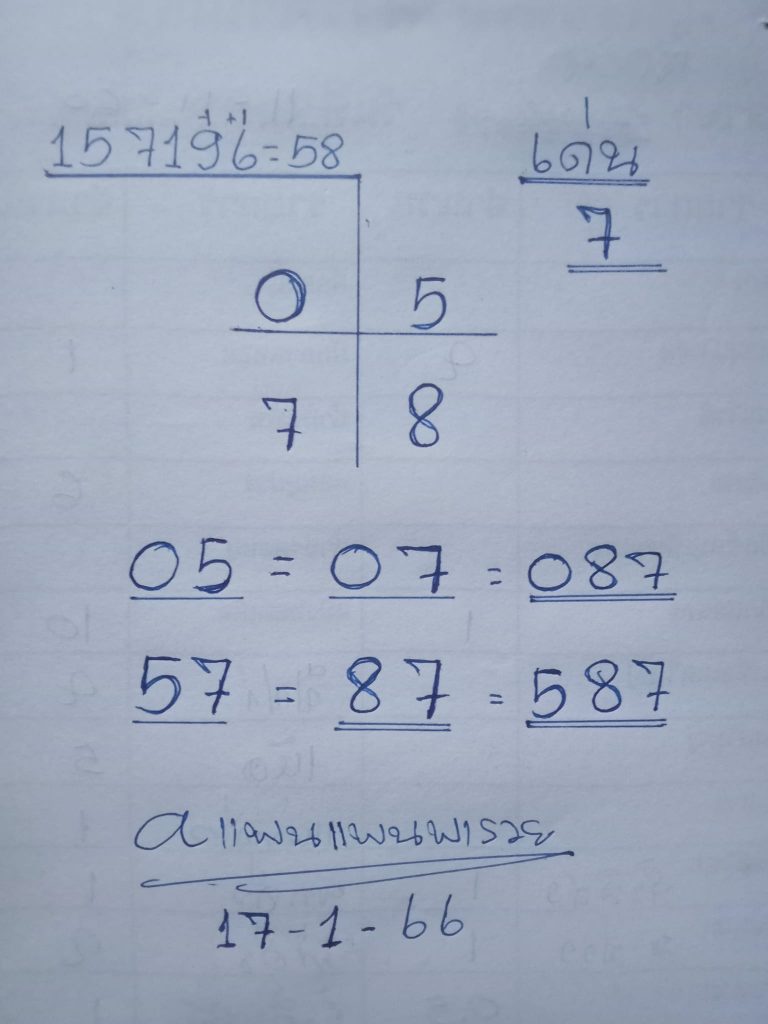 -1 +1
157196=58
1
เดน
7
0 5
7 8
05 = 07 = 087
57 = 87 = 587
a แพนแพนพารวย
17-1-66